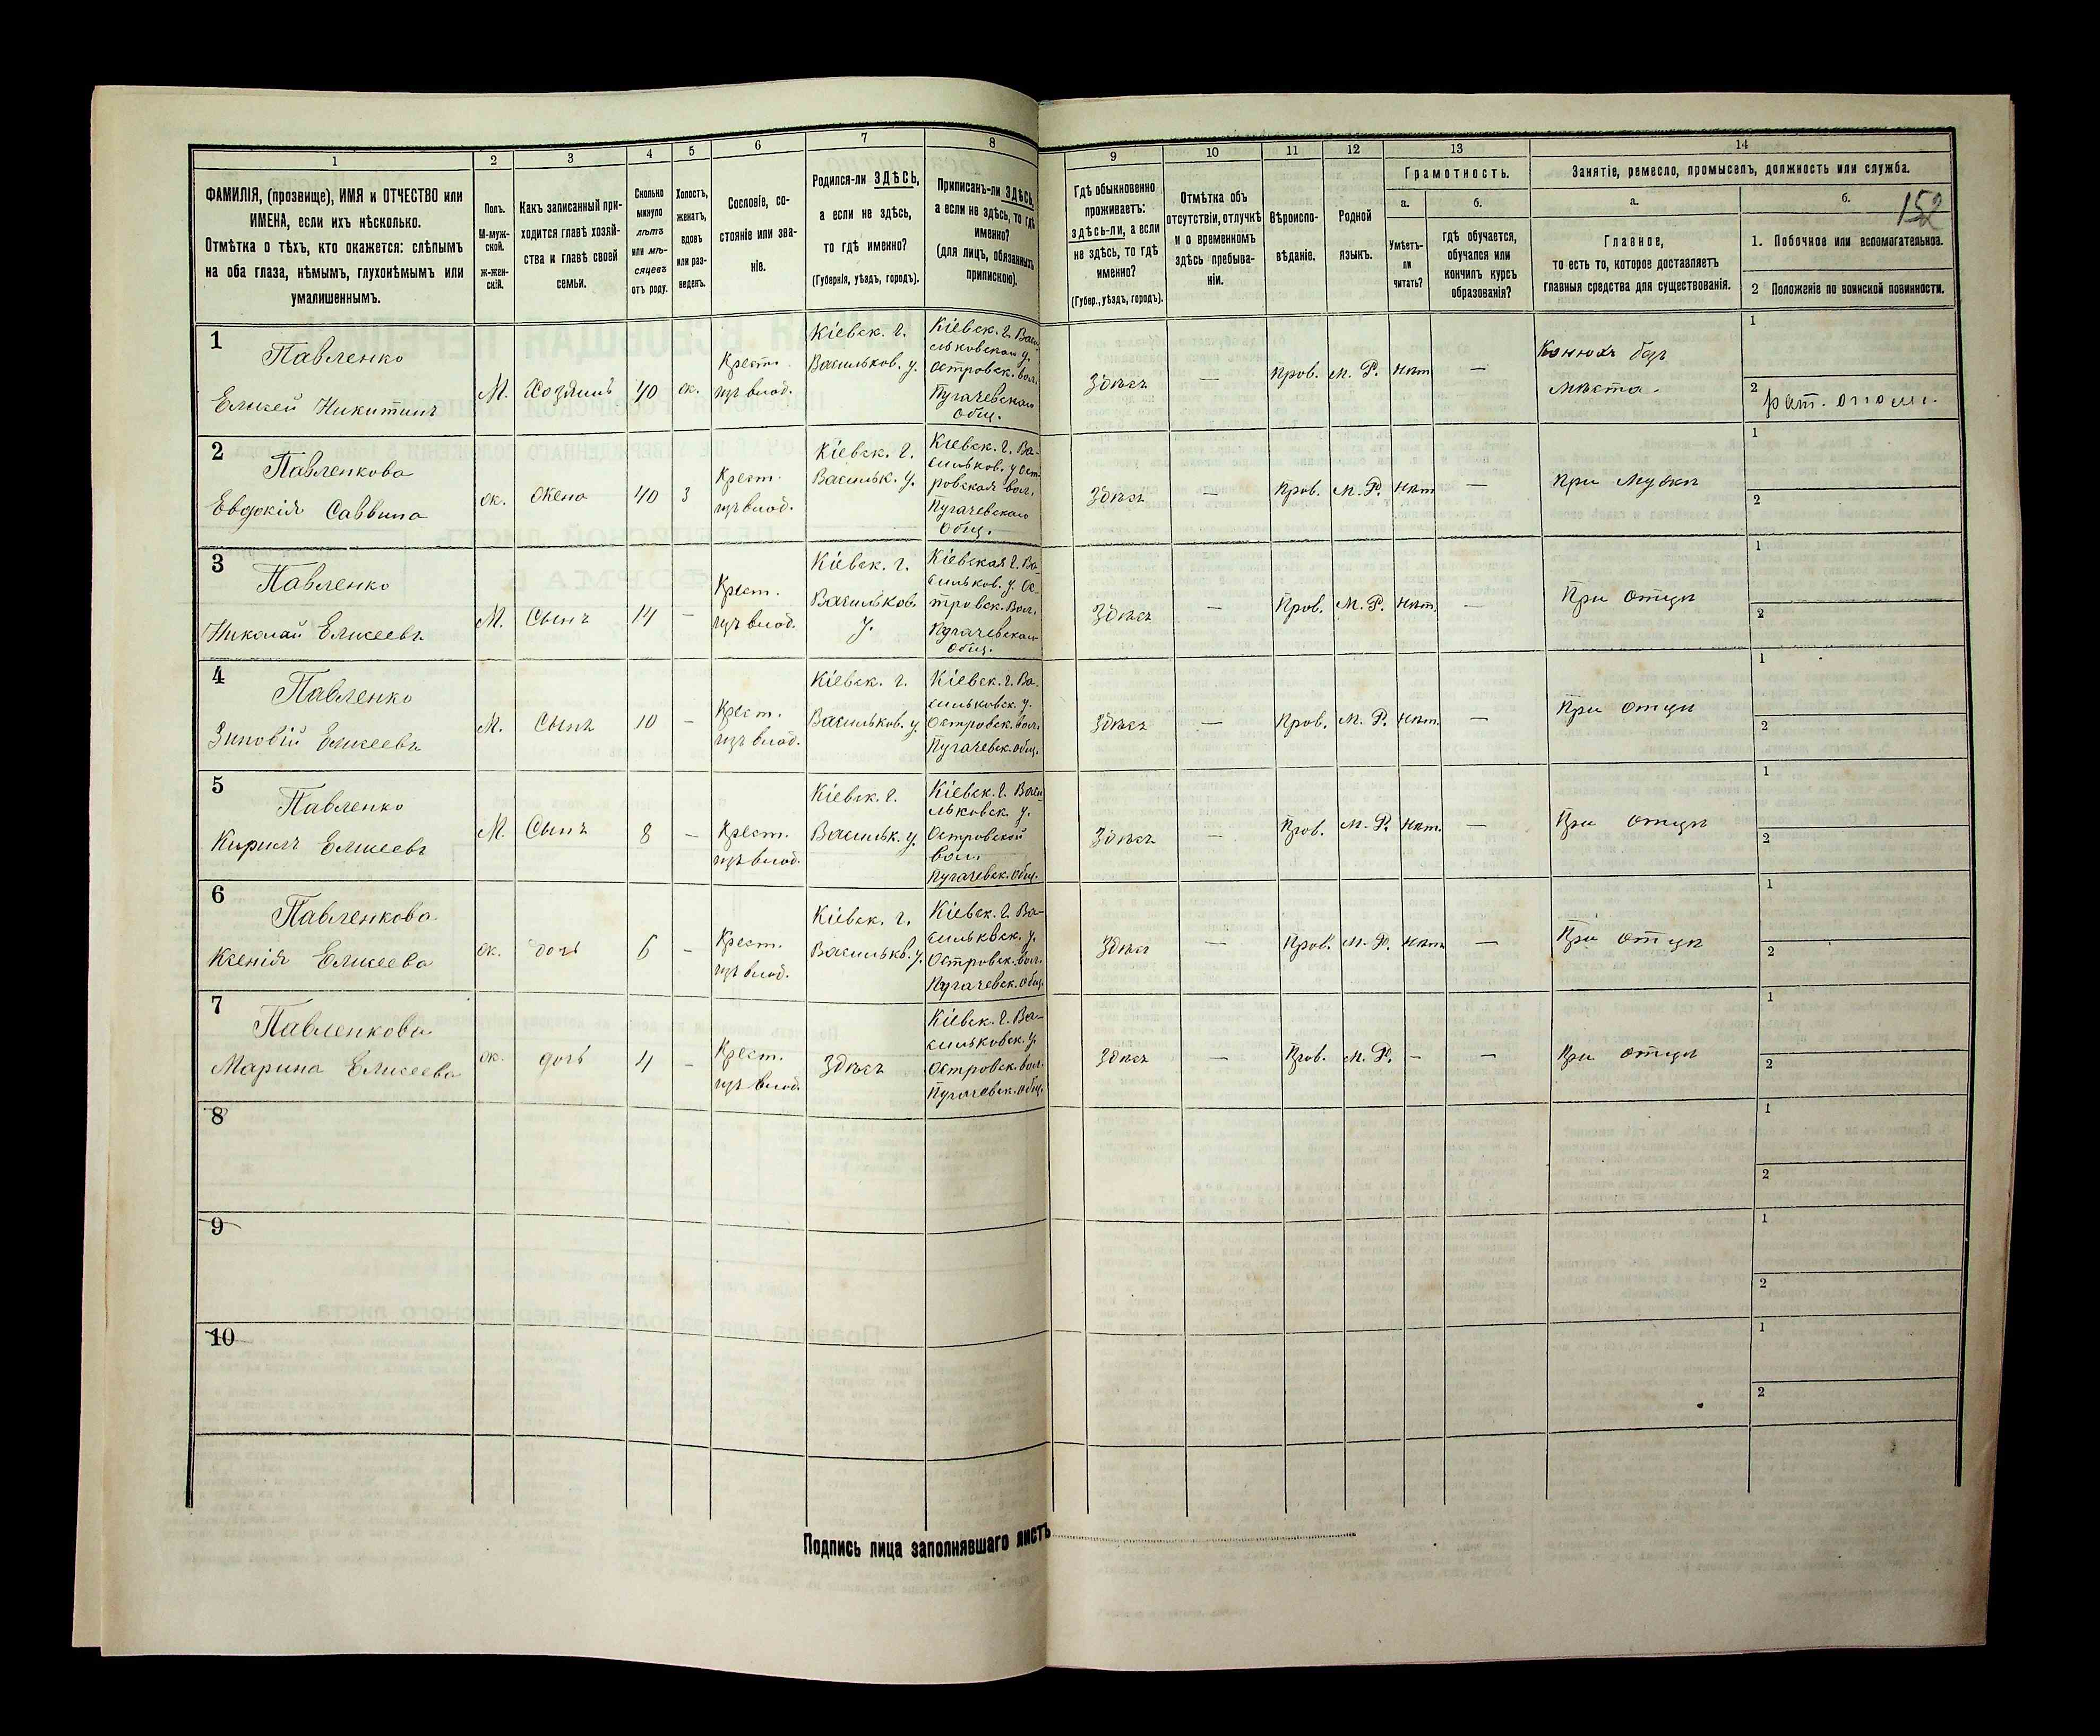 152
1
2
3
4
5
6
7
8
9
10
11
12
13
14
ФАМИЛІЯ, (прозвище), ИМЯ и ОТЧЕСТВО или
ИМЕНА, если ихъ нѣсколько.
Отмѣтка о тѣхъ, кто окажется: слѣпымъ
на оба глаза, нѣмымъ, глухонѣмымъ или
умалишеннымъ.
Полъ.
М-муж-
ской.
ж-жен-
скій.
Какъ записанный при-
ходится главѣ хозяй-
ства и главѣ своей
семьи.
Сколько
минуло
лѣтъ
или мѣ-
сяцевъ
отъ роду.
Холостъ,
женатъ,
вдовъ
или раз-
веденъ.
Сословіе, со-
стояніе или зва-
ніе.
Родился-ли ЗДѢСЬ,
а если не здѣсь,
то гдѣ именно?
(Губернія, уѣздъ, городъ).
Приписанъ-ли ЗДѢСЬ,
а если не здѣсь, то гдѣ
именно?
(для лицъ, обязанныхъ
припискою).
Гдѣ обыкновенно
проживаетъ:
здѣсь-ли, а если
не здѣсь, то гдѣ
именно?
(Губер., уѣздъ, городъ).
Отмѣтка объ
отсутствіи, отлучкѣ
и о временномъ
здѣсь пребыва-
ніи.
Вѣроиспо-
вѣданіе.
Родной
языкъ.
Грамотность.
а.
Умѣетъ-
ли
читать?
б.
гдѣ обучается,
обучался или
кончилъ курсъ
образованія?
Занятіе, ремесло, промыселъ, должность или служба.
а.
Главное,
то есть то, которое доставляетъ
главныя средства для существованія.
б.
1. Побочное или вспомогательное.
2 Положеніе по воинской повинности.
1
Павленко
Елисей Никитинъ
М.
Хозяинъ
40
ж.
Крест.
изъ влад.
Кіевск. г.
Васильков. у.
Кіевск. г. Васи-
льковскаго у.
Островск. вол.
Пугачевскаго
общ.
Здѣсь
—
Прав.
М. Р.
нѣт
—
Конюхъ безъ
мѣста.
1
2 рат. ополч.
2
Павленкова
Евдокія Саввина
ж.
Жена
40
З
Крест.
изъ влад.
Кіевск. г.
Васильк. у.
Кіевск. г. Ва-
сильков. у Ост-
ровская вол.
Пугачевскаго
общ.
Здѣсь
—
Прав.
М. Р.
нѣт
—
При мужѣ
1
2
3
Павленко
Николай Елисеевъ
М.
Сынъ
14
—
Крест.
изъ влад.
Кіевск. г.
Васильков.
у.
Кіевская г. Ва-
сильков. у. Ос-
тровск. Вол.
Пугачевскаго
общ.
Здѣсь
—
Прав.
М. Р.
нѣт.
—
При отцѣ
1
2
4
Павленко
Зиновій Елисеевъ
М.
Сынъ
10
—
Крест.
изъ влад.
Кіевск. г.
Васильков. у.
Кіевск. г. Ва-
сильковск. у.
Островск. вол.
Пугачевск. общ.
Здѣсь
—
Прав.
М. Р.
нѣт.
—
При отцѣ
1
2
5
Павленко
Кирилъ Елисеевъ
М.
Сынъ
8
—
Крест.
изъ влад.
Кіевск. г.
Васильк. у.
Кіевск. г. Васи-
льковск. у.
Островской
вол.
Пугачевск. общ.
Здѣсь
—
Прав.
М. Р.
нѣт.
—
При отцѣ
1
2
6
Павленкова
Ксенія Елисеева
ж.
дочь
6
—
Крест.
изъ влад.
Кіевск. г.
Васильков. у.
Кіевск. г. Ва-
сильквск. у.
Островск. вол.
Пугачевск. общ.
Здѣсь
—
Прав.
М. Р.
нѣт.
—
При отцѣ
1
2
7
Павленкова
Марина Елисеева
ж.
дочь
4
—
Крест.
изъ влад.
Здѣсь
Кіевск. г. Ва-
сильковск. у.
Островск. вол.
Пугачевск. общ.
Здѣсь
—
Прав.
М. Р.
—
—
При отцѣ
1
2
8
1
2
9
1
2
10
1
2
Подпись лица заполнявшаго листъ